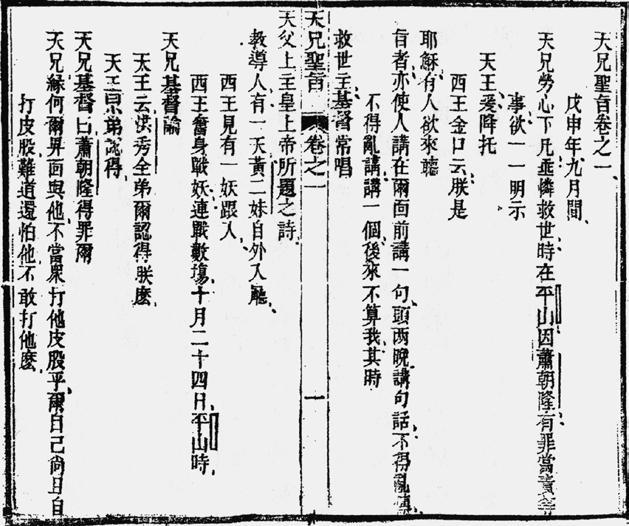 天兄聖旨卷之一
戊申年九月間
天兄勞心下凡垂憐救世時在平山因蕭朝隆有罪當責
事欲一一明示
天王爰降托
西王金口云朕是
耶穌有人欲來聽
旨者亦使人講在爾面前講一句頭兩晚講句話不得亂
不得亂講講一個後來不算我其時
救世主基督常唱
天兄聖旨 卷之一 一
天父上主皇上帝所題之詩
教導人有一天黃二妹自外入廳
西王見有一妖跟人
西王奮身戰妖連戰數塲十月二十四日平山時
天兄基督諭
天王云洪秀全弟爾認得朕麽
天王曰小弟認得
天兄基督曰蕭朝隆得罪爾
天兄緣何爾畀面與他不當衆打他皮股乎爾自己尚且自
打皮股難道還怕他不敢打他麽